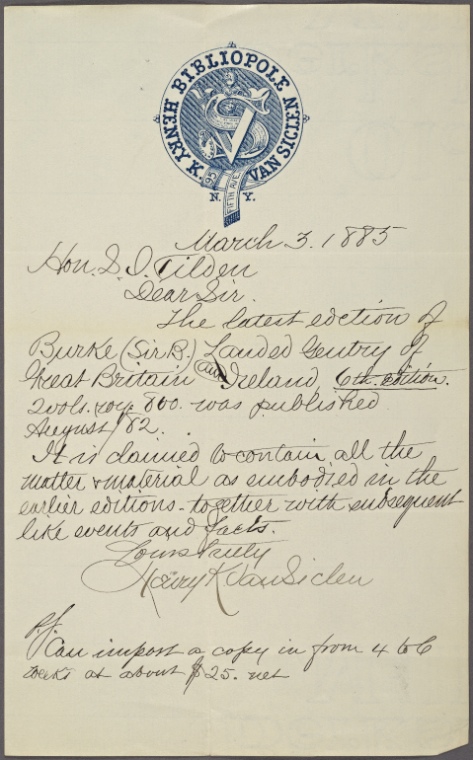 HENRY K. BIBLIOPOLE VAN SICLEN
95 FIFTH AVE
N. Y.
March. 3. 1885
Hon. S. J. Tilden
Dear Sir.
The latest edition of
Burke (Sir B.) Landed Gentry of
Great Britain and Ireland, 6th. edition.
2 vols. roy. 8vo. was published
August / 82.
It is claimed to contain all the
matter & material as embodied in the
earlier editions - together with subsequent
like events and facts.
Yours truly
Henry K Van Siclen
P.S.
Can import a copy in from 4 to 6
weeks at about $25. net